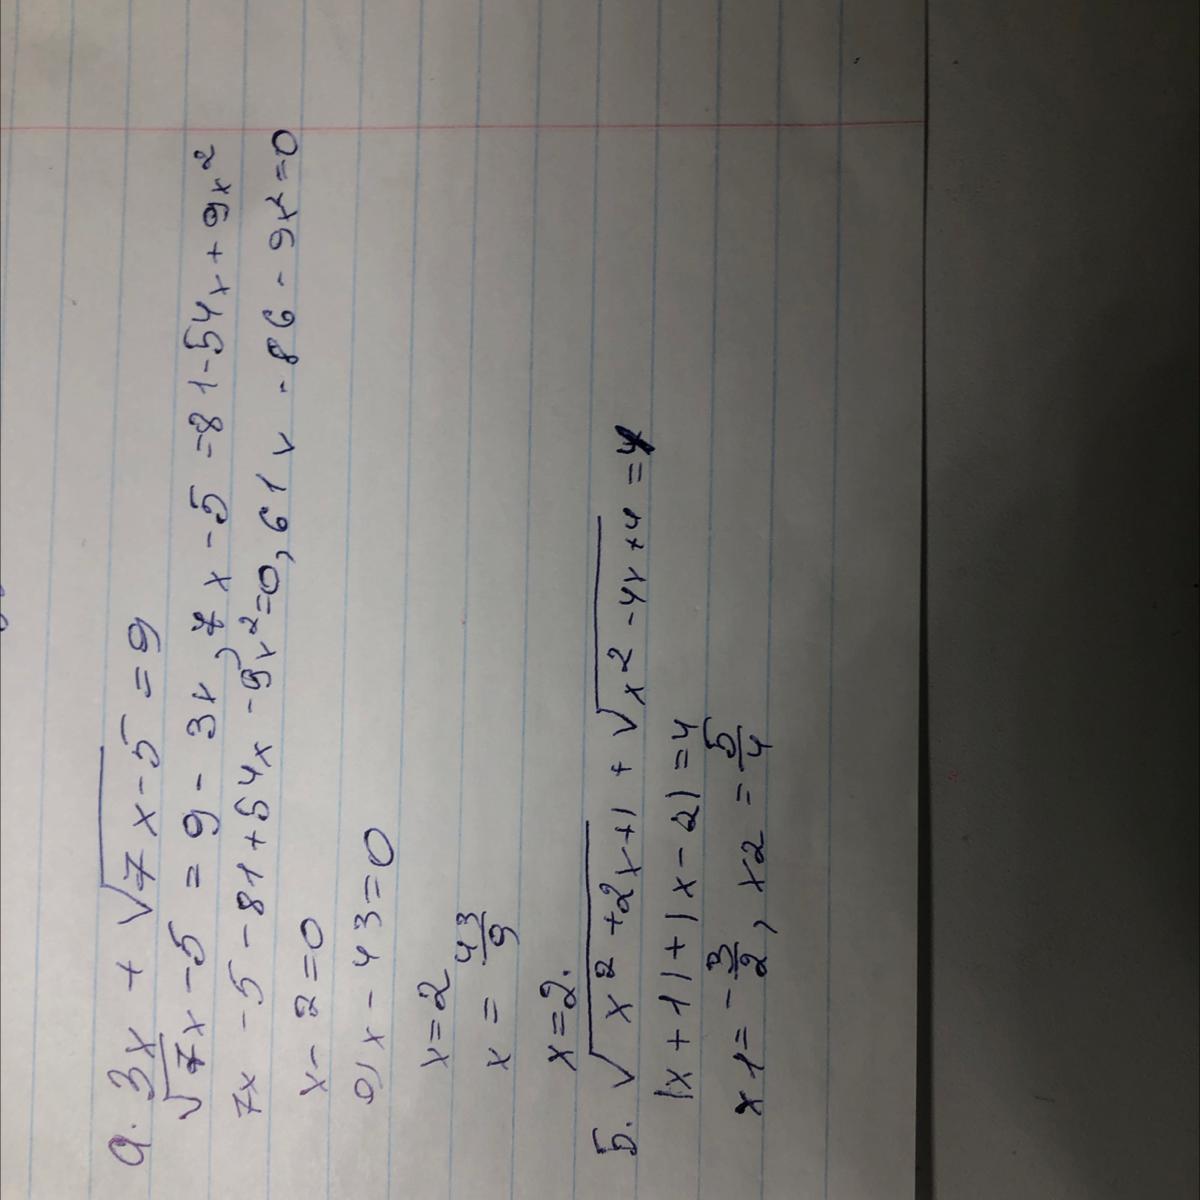 a. 3x + √7x-5 = 9
√7x-5 = 9 - 3x, 7x-5 = 81-54x+9x²
7x-5-81+54x-9x²=0, 61x-86-9x²=0
x-2=0
9x-43=0
x=2
x = 43/9
x=2.
б. √x²+2x+1 + √x²-4x+4 = 4
|x+1|+|x-2|=4
x1=-3/2, x2=5/4